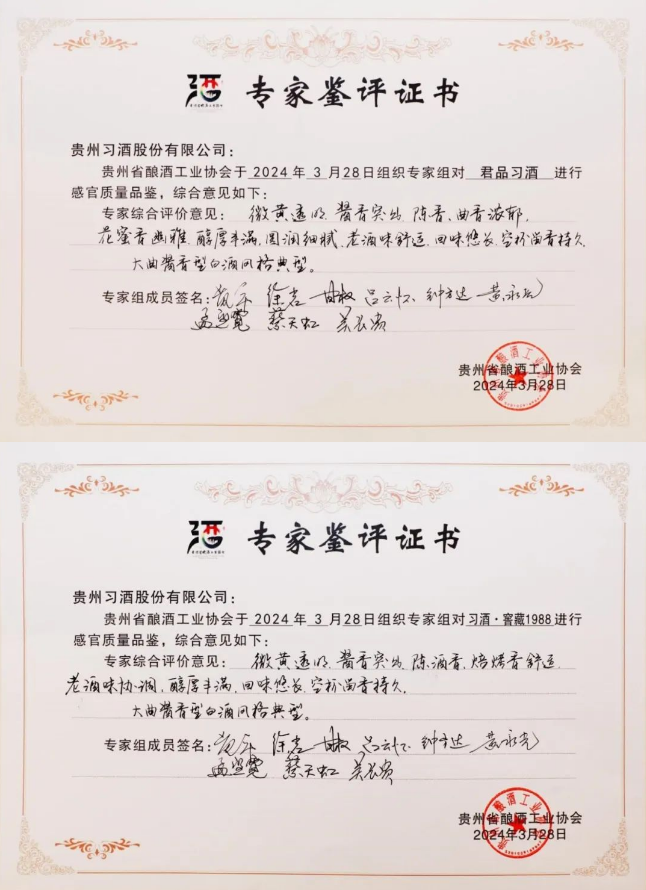 酒 专家鉴评证书
贵州习酒股份有限公司：
贵州省酿酒工业协会于2024年3月28日组织专家组对 君品习酒 进行
感官质量品鉴，综合意见如下：
专家综合评价意见：微黄透明、酱香突出、陈香、曲香浓郁，
花蜜香幽雅、醇厚丰满、圆润细腻、老酒味舒适、回味悠长、空杯留香持久，
大曲酱香型白酒风格典型。
专家组成员签名： 徐岩 吕云怀 钟方达 黄永光
孟望霓 蔡天虹
贵州省酿酒工业协会
2024年3月28日
酒 专家鉴评证书
贵州习酒股份有限公司：
贵州省酿酒工业协会于2024年3月28日组织专家组对习酒·窖藏1988进行
感官质量品鉴，综合意见如下：
专家综合评价意见：微黄透明、酱香突出、陈酒香、焙烤香舒适、
老酒味协调、醇厚丰满、回味悠长、空杯留香持久，
大曲酱香型白酒风格典型。
专家组成员签名： 徐岩 吕云怀 钟方达 黄永光
孟望霓 蔡天虹
贵州省酿酒工业协会
2024年3月28日